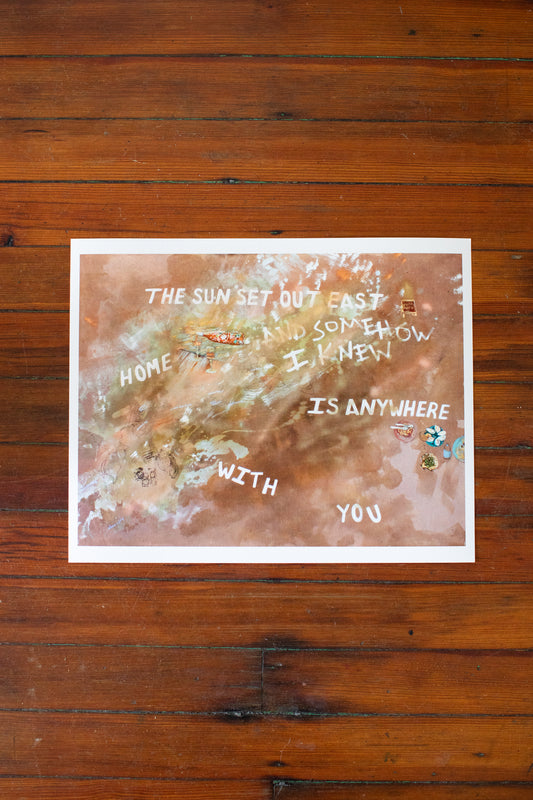 THE SUN SET OUT EAST
AND SOMEHOW
I KNEW
HOME
IS ANYWHERE
WITH
YOU